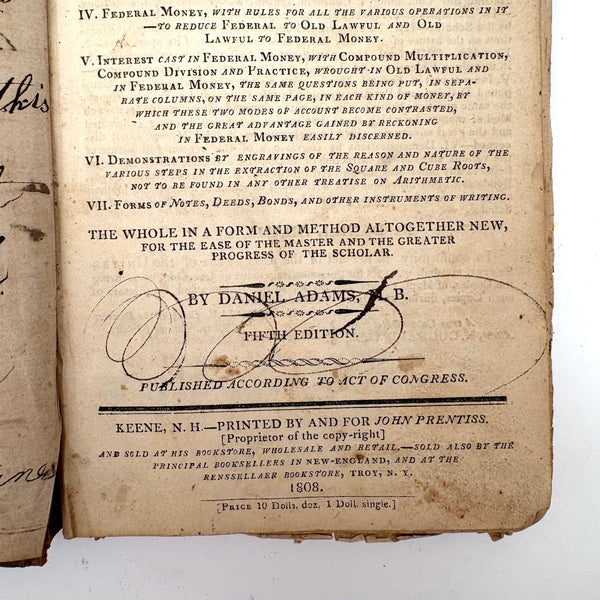 IV. Federal Money, with rules for all the various operations in it
—to reduce Federal to Old Lawful and Old
Lawful to Federal Money.
V. Interest cast in Federal Money, with Compound Multiplication,
Compound Division and Practice, wrought in Old Lawful and
in Federal Money, the same questions being put, in sepa-
rate columns, on the same page, in each kind of money, by
which these two modes of account become contrasted,
and the great advantage gained by reckoning
in Federal Money easily discerned.
VI. Demonstrations by engravings of the reason and nature of the
various steps in the extraction of the Square and Cube Roots,
not to be found in any other treatise on Arithmetic.
VII. Forms of Notes, Deeds, Bonds, and other instruments of writing.
THE WHOLE IN A FORM AND METHOD ALTOGETHER NEW,
FOR THE EASE OF THE MASTER AND THE GREATER
PROGRESS OF THE SCHOLAR.
BY DANIEL ADAMS, M. B.
FIFTH EDITION.
PUBLISHED ACCORDING TO ACT OF CONGRESS.
KEENE, N. H.—PRINTED BY AND FOR JOHN PRENTISS.
[Proprietor of the copy-right]
AND SOLD AT HIS BOOKSTORE, WHOLESALE AND RETAIL.—SOLD ALSO BY THE
PRINCIPAL BOOKSELLERS IN NEW-ENGLAND, AND AT THE
RENSSELLAER BOOKSTORE, TROY, N. Y.
1808.
[Price 10 Dolls. doz. 1 Doll. single.]
this